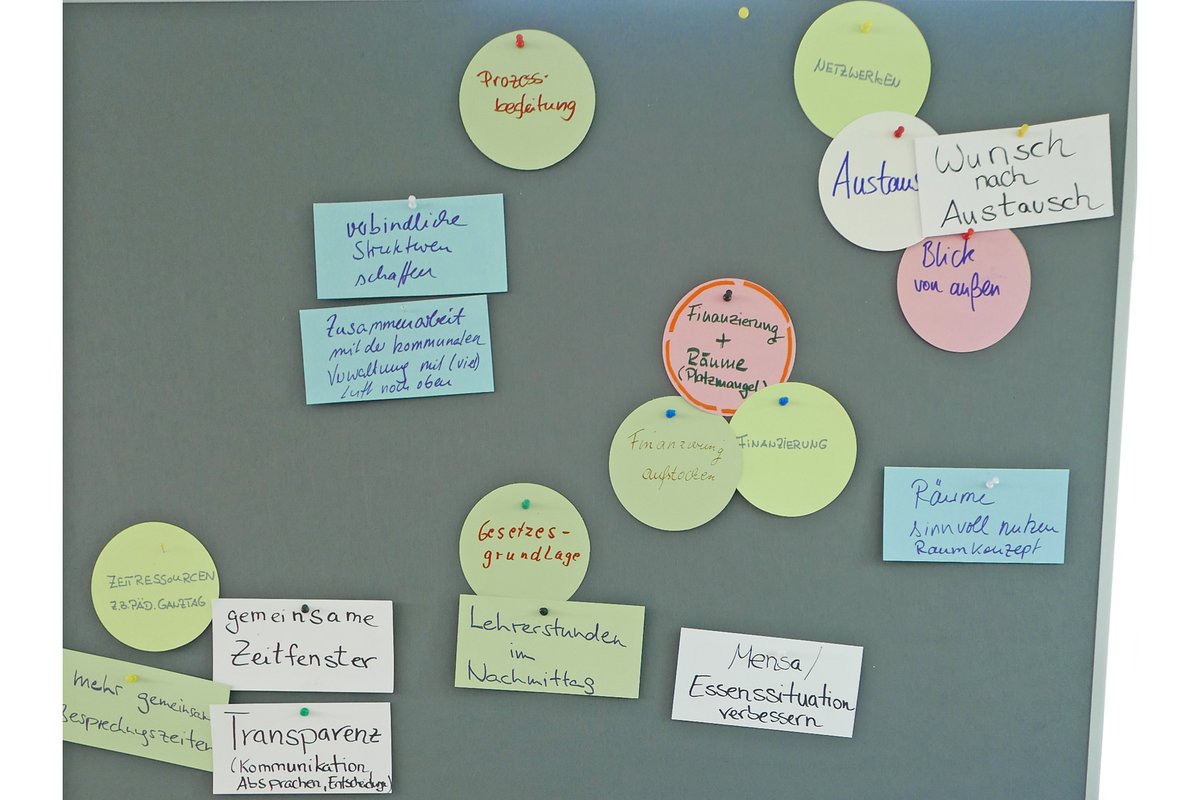 Prozess-
begleitung
NETZWERKEN
Austaus
Wunsch
nach
Austausch
Blick
von außen
verbindliche
Strukturen
schaffen
Zusammenarbeit
mit der kommunalen
Verwaltung mit (viel)
Luft nach oben
Finanzierung
+
Räume
(Platzmangel)
Finanzierung
aufstocken
FINANZIERUNG
Räume
sinnvoll nutzen
Raumkonzept
Gesetzes-
grundlage
Lehrerstunden
im
Nachmittag
Mensa/
Essenssituation
verbessern
ZEITRESSOURCEN
Z.B. PÄD. GANZTAG
gemeinsame
Zeitfenster
mehr gemeinsam
Besprechungszeiten
Transparenz
(Kommunikation
Absprachen, Entscheidunge)